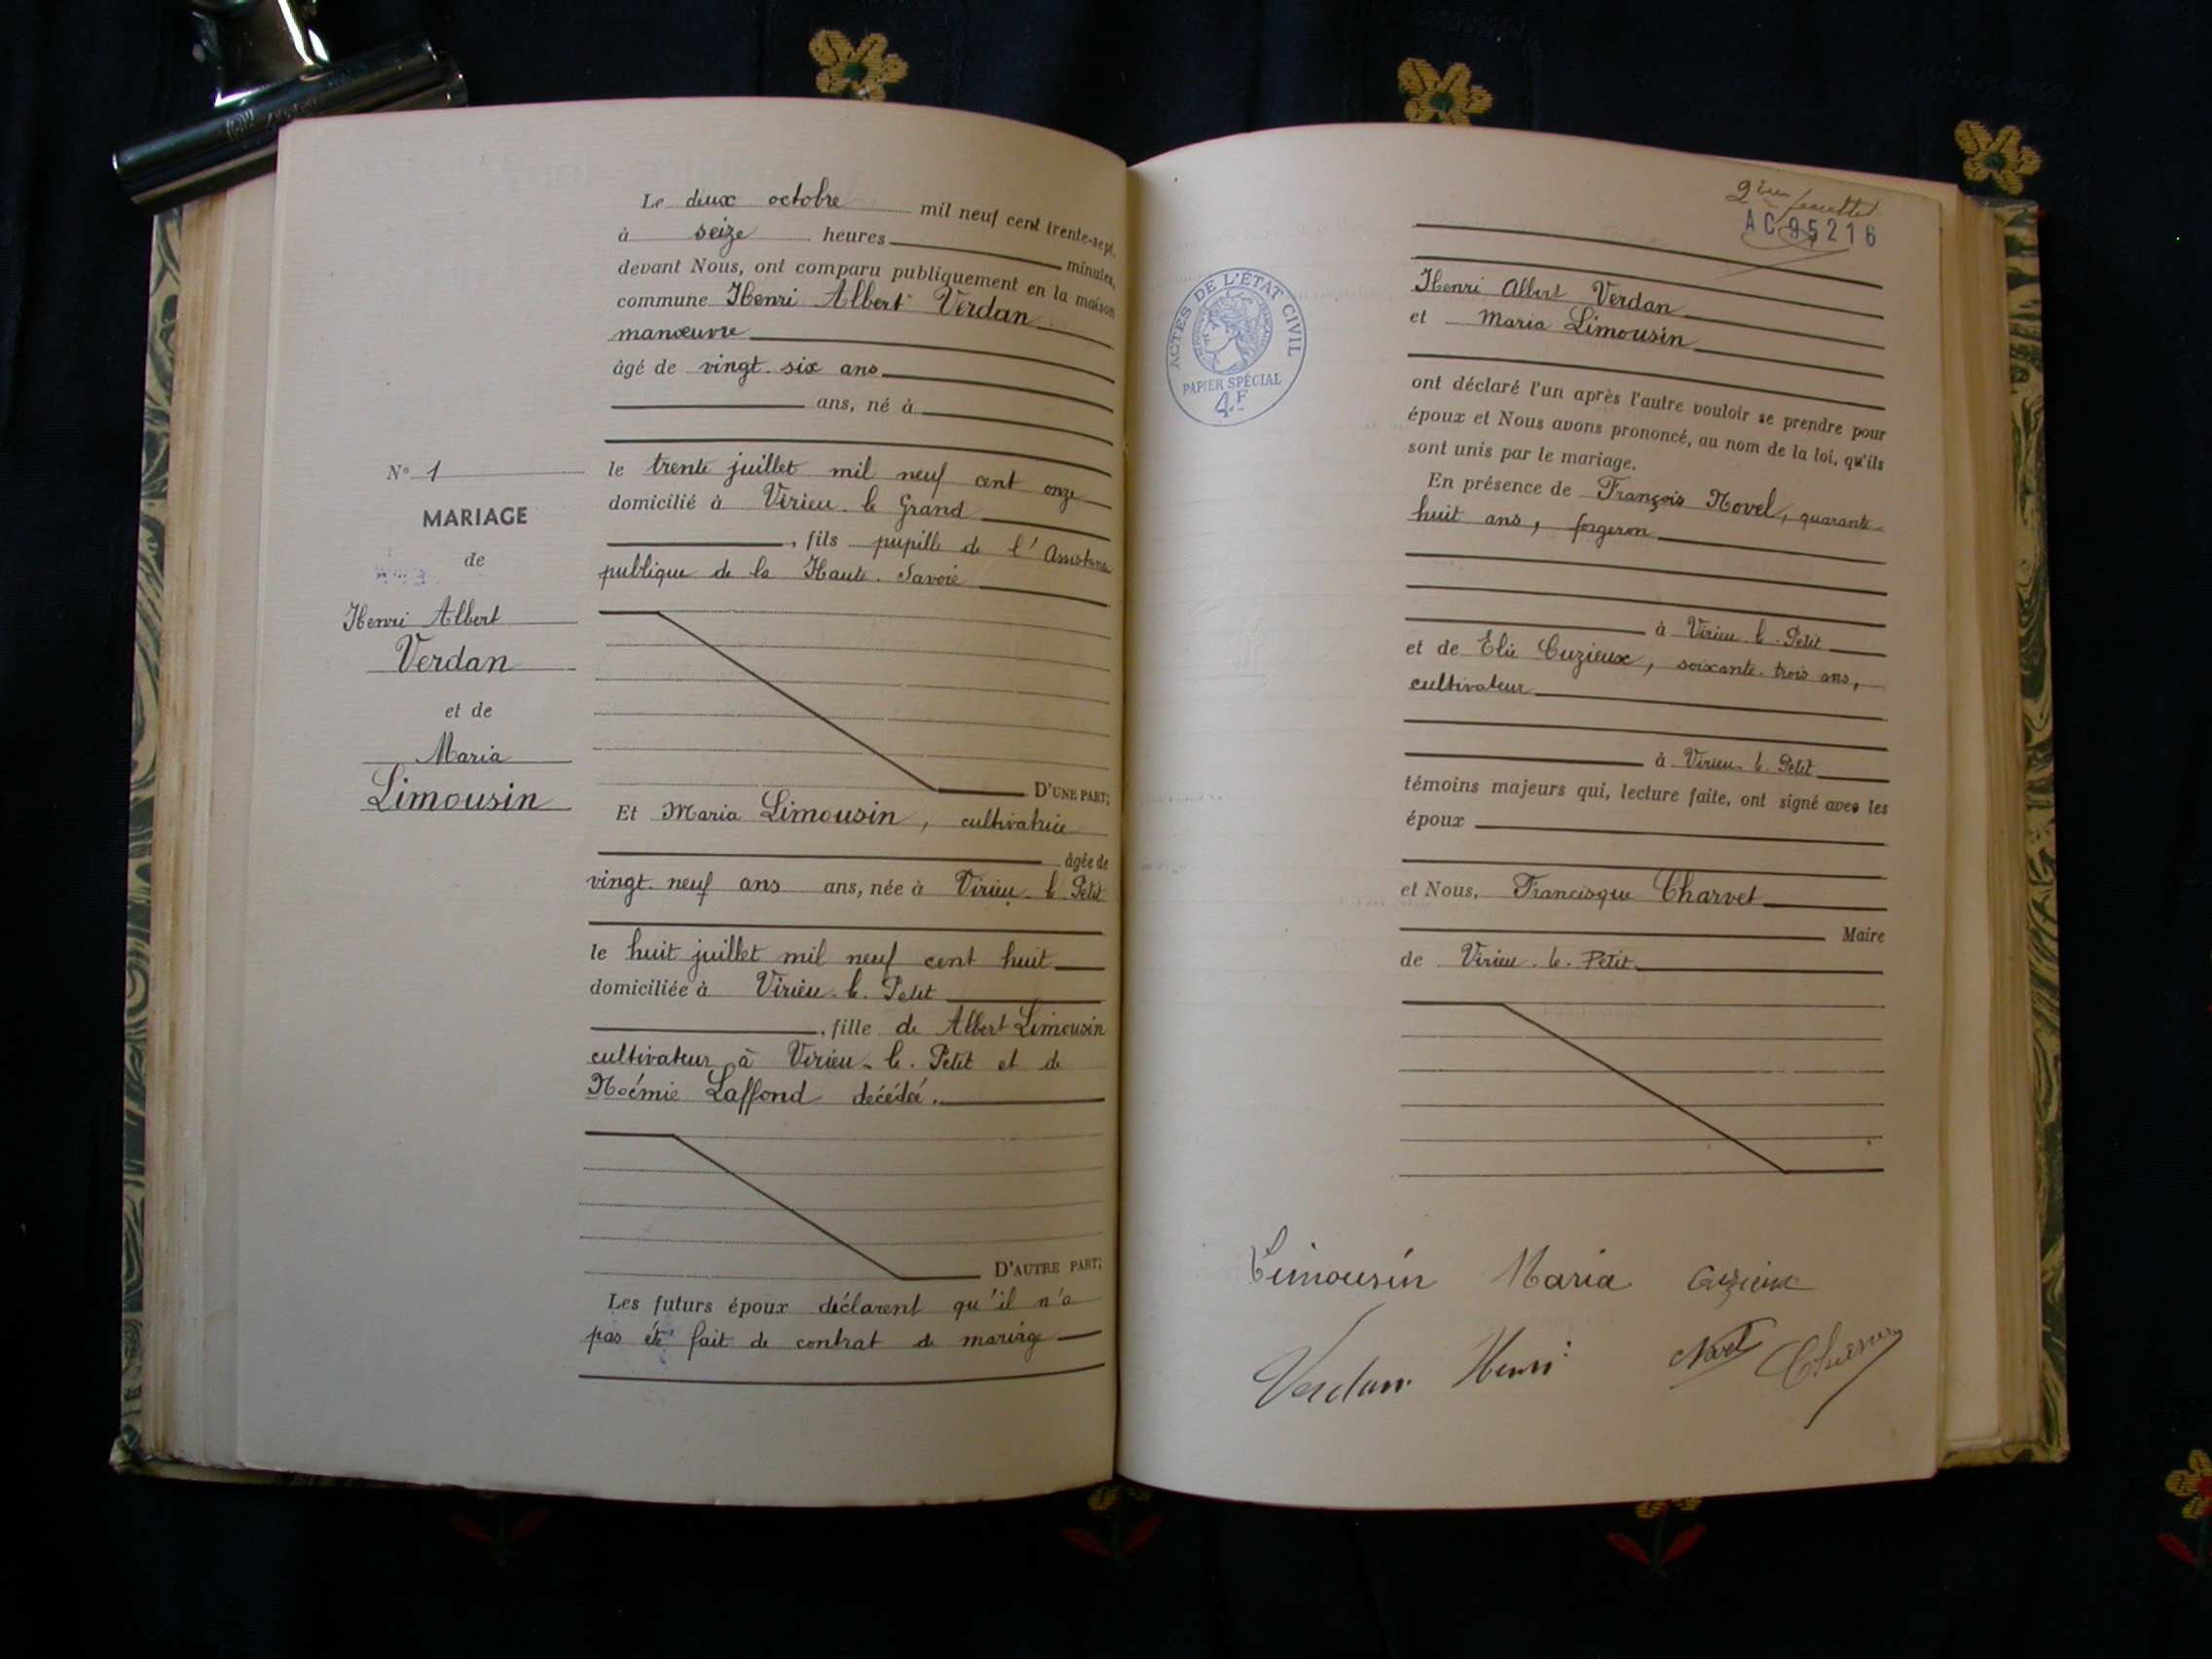 Le deux octobre mil neuf cent trente-sept,
à seize heures minutes,
devant Nous, ont comparu publiquement en la maison
commune Henri Albert Verdan
manœuvre
âgé de vingt-six ans
ans, né à
le trente juillet mil neuf cent onze
domicilié à Virieu-le-Grand
, fils pupille de l'Assistance
publique de la Haute-Savoie
D'UNE PART;
N° 1
MARIAGE
de
Henri Albert
Verdan
et de
Maria
Limousin
Et Maria Limousin, cultivatrice
âgée de
vingt-neuf ans ans, née à Virieu-le-Petit
le huit juillet mil neuf cent huit
domiciliée à Virieu-le-Petit
, fille de Albert Limousin
cultivateur à Virieu-le-Petit et de
Noémie Laffond décédée.
D'AUTRE PART;
Les futurs époux déclarent qu'il n'a
pas été fait de contrat de mariage
2ème feuillet
AC 95216
ACTES DE L'ÉTAT CIVIL
PAPIER SPÉCIAL
4F
Henri Albert Verdan
et Maria Limousin
ont déclaré l'un après l'autre vouloir se prendre pour
époux et Nous avons prononcé, au nom de la loi, qu'ils
sont unis par le mariage.
En présence de François Novel, quarante-
huit ans, forgeron
à Virieu-le-Petit
et de Elie Cuzieux, soixante-trois ans,
cultivateur
à Virieu-le-Petit
témoins majeurs qui, lecture faite, ont signé avec les
époux
et Nous, Francisque Charvet
Maire
de Virieu-le-Petit
Limousin Maria Cuzieux
Verdan Henri Novel